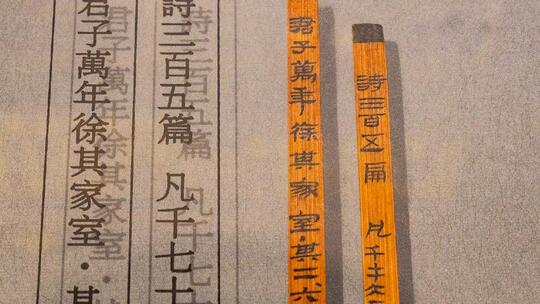 詩三百五扁 凡千七十六
君子萬年徐其家室·其二六
詩三百五篇 凡千七十
君子萬年徐其家室·其